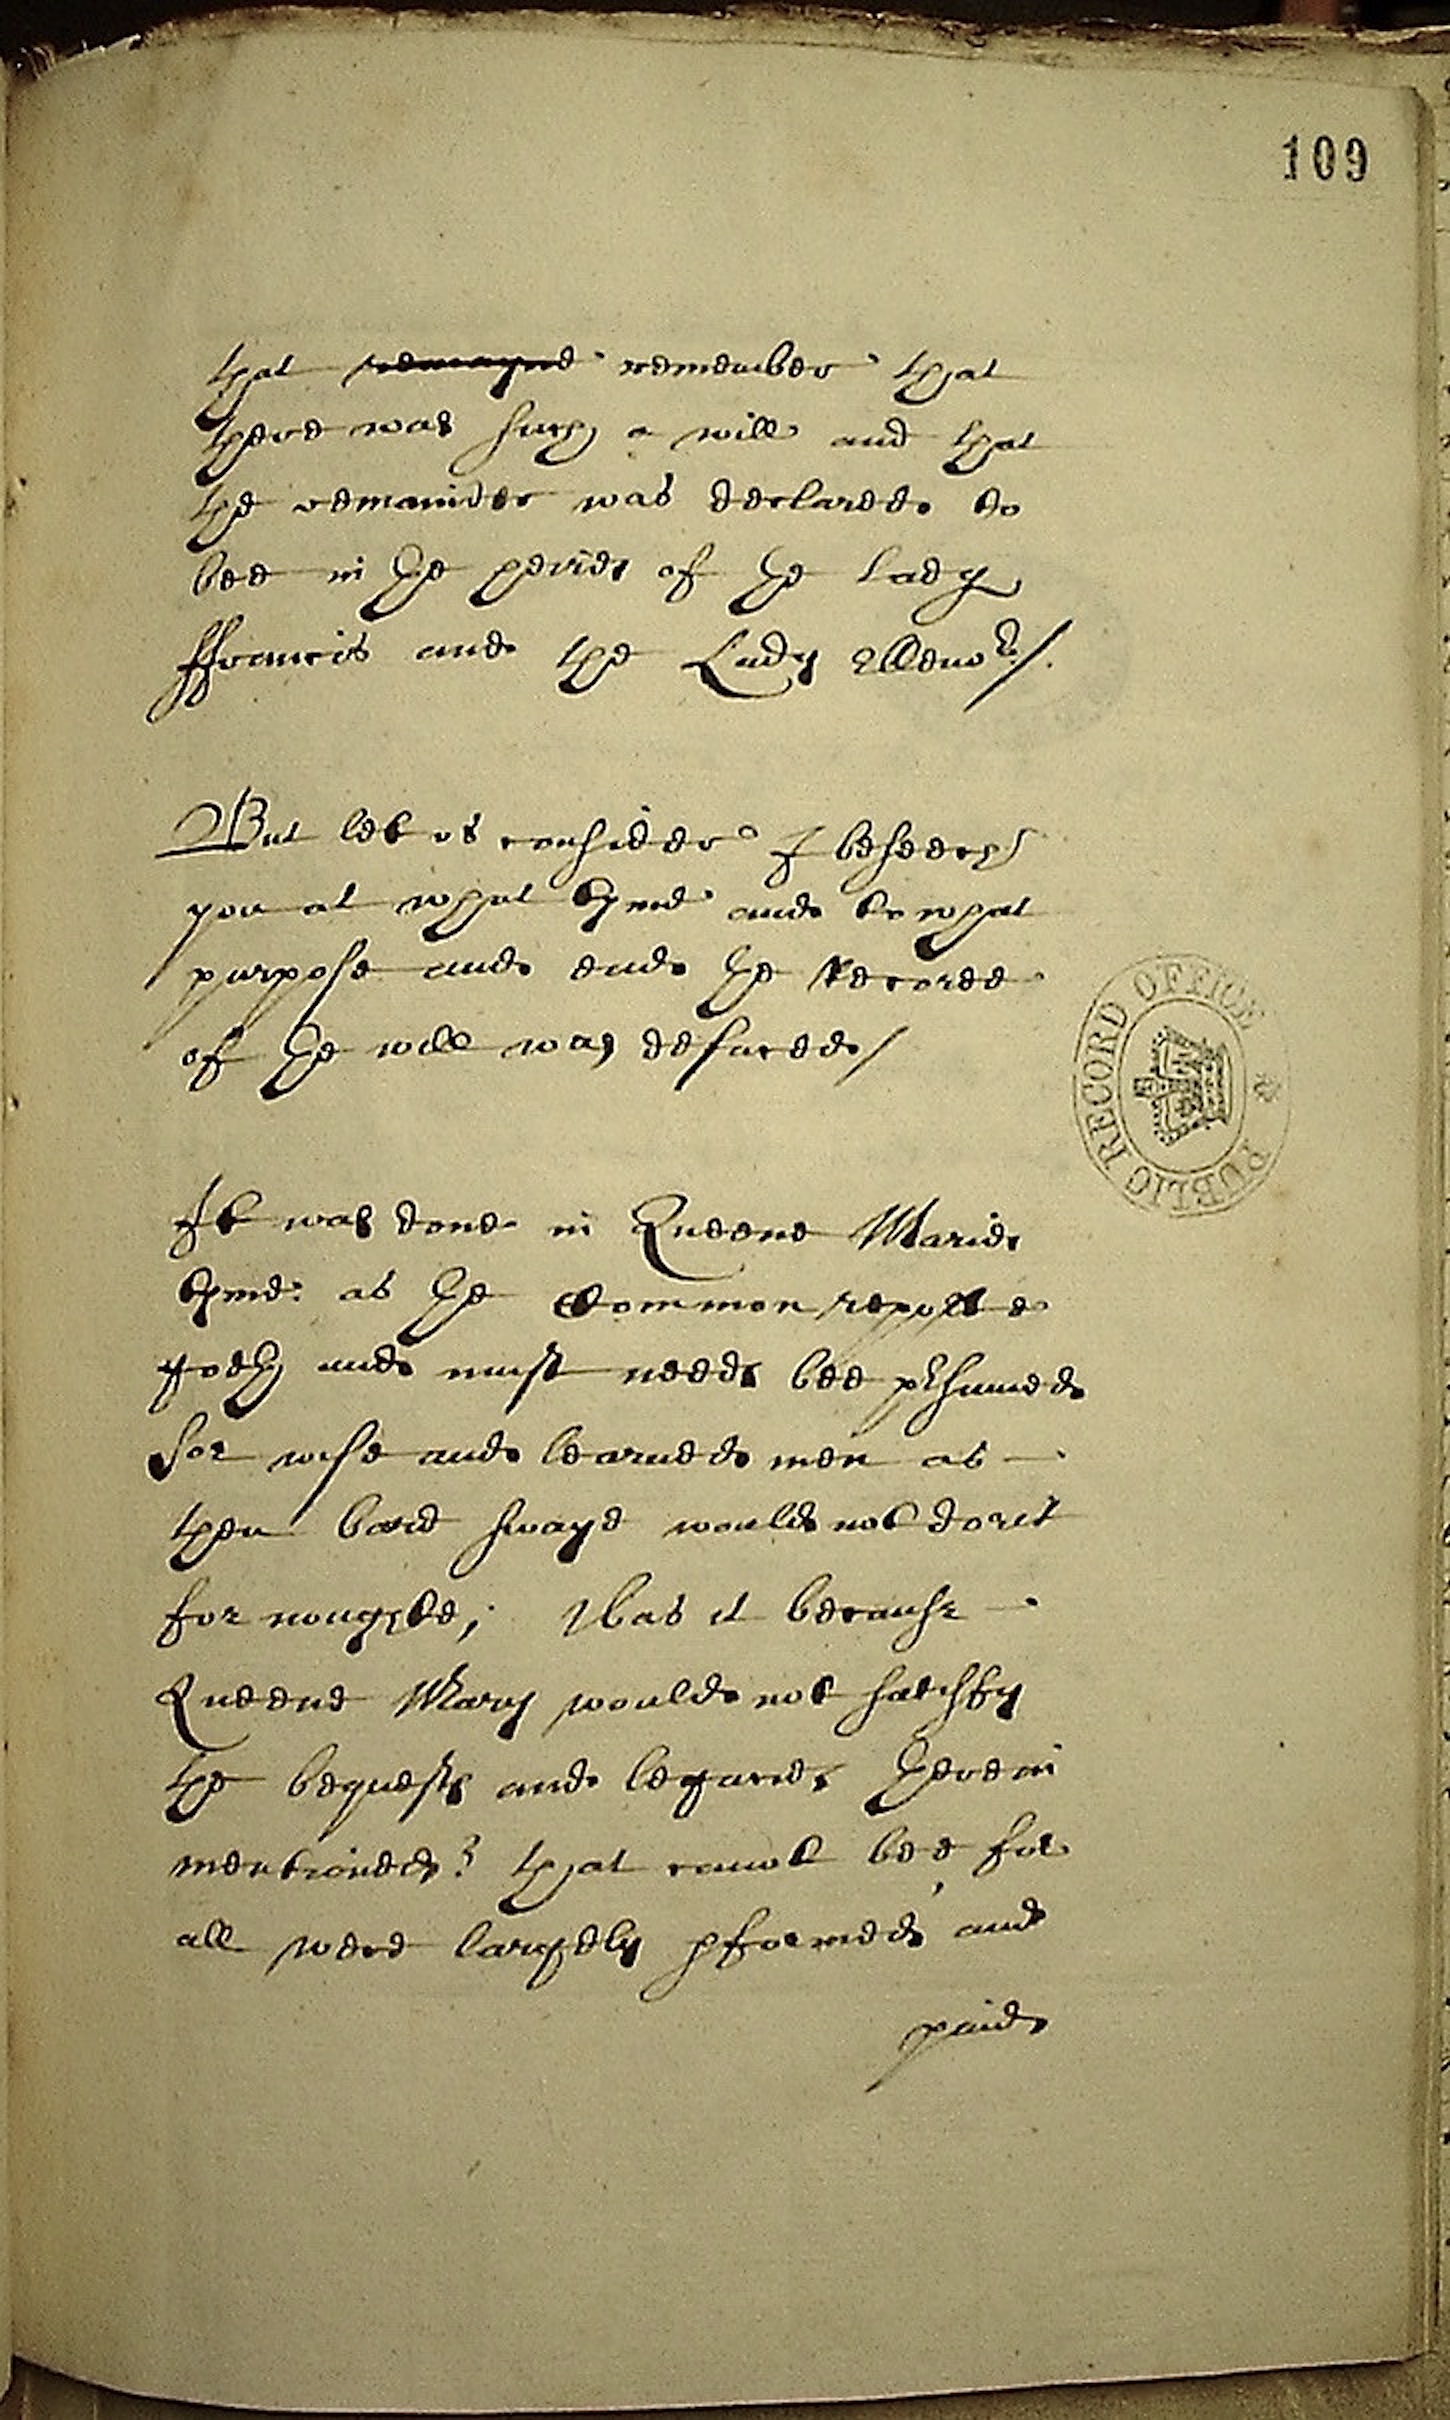 109
that remayne remember that
there was such a will and that
the remainder was declared to
bee in the heires of the Lady
ffrancis and the Lady Ellenor /.
But let vs consider I beseech
you at what tyme and to what
purpose and end the Recorde
of the will was defaced /
It was done in Queene Maries
tyme as the Common reporte
goeth and must needs bee p̱sumed
for wise and learned men as
then bare swaye would not do it
for noughte; Was it because
Queene Mary would not satisfy
the bequests and legacies therein
mentioned? that cannot bee for
all were largely pformed and
paid
PUBLIC RECORD OFFICE